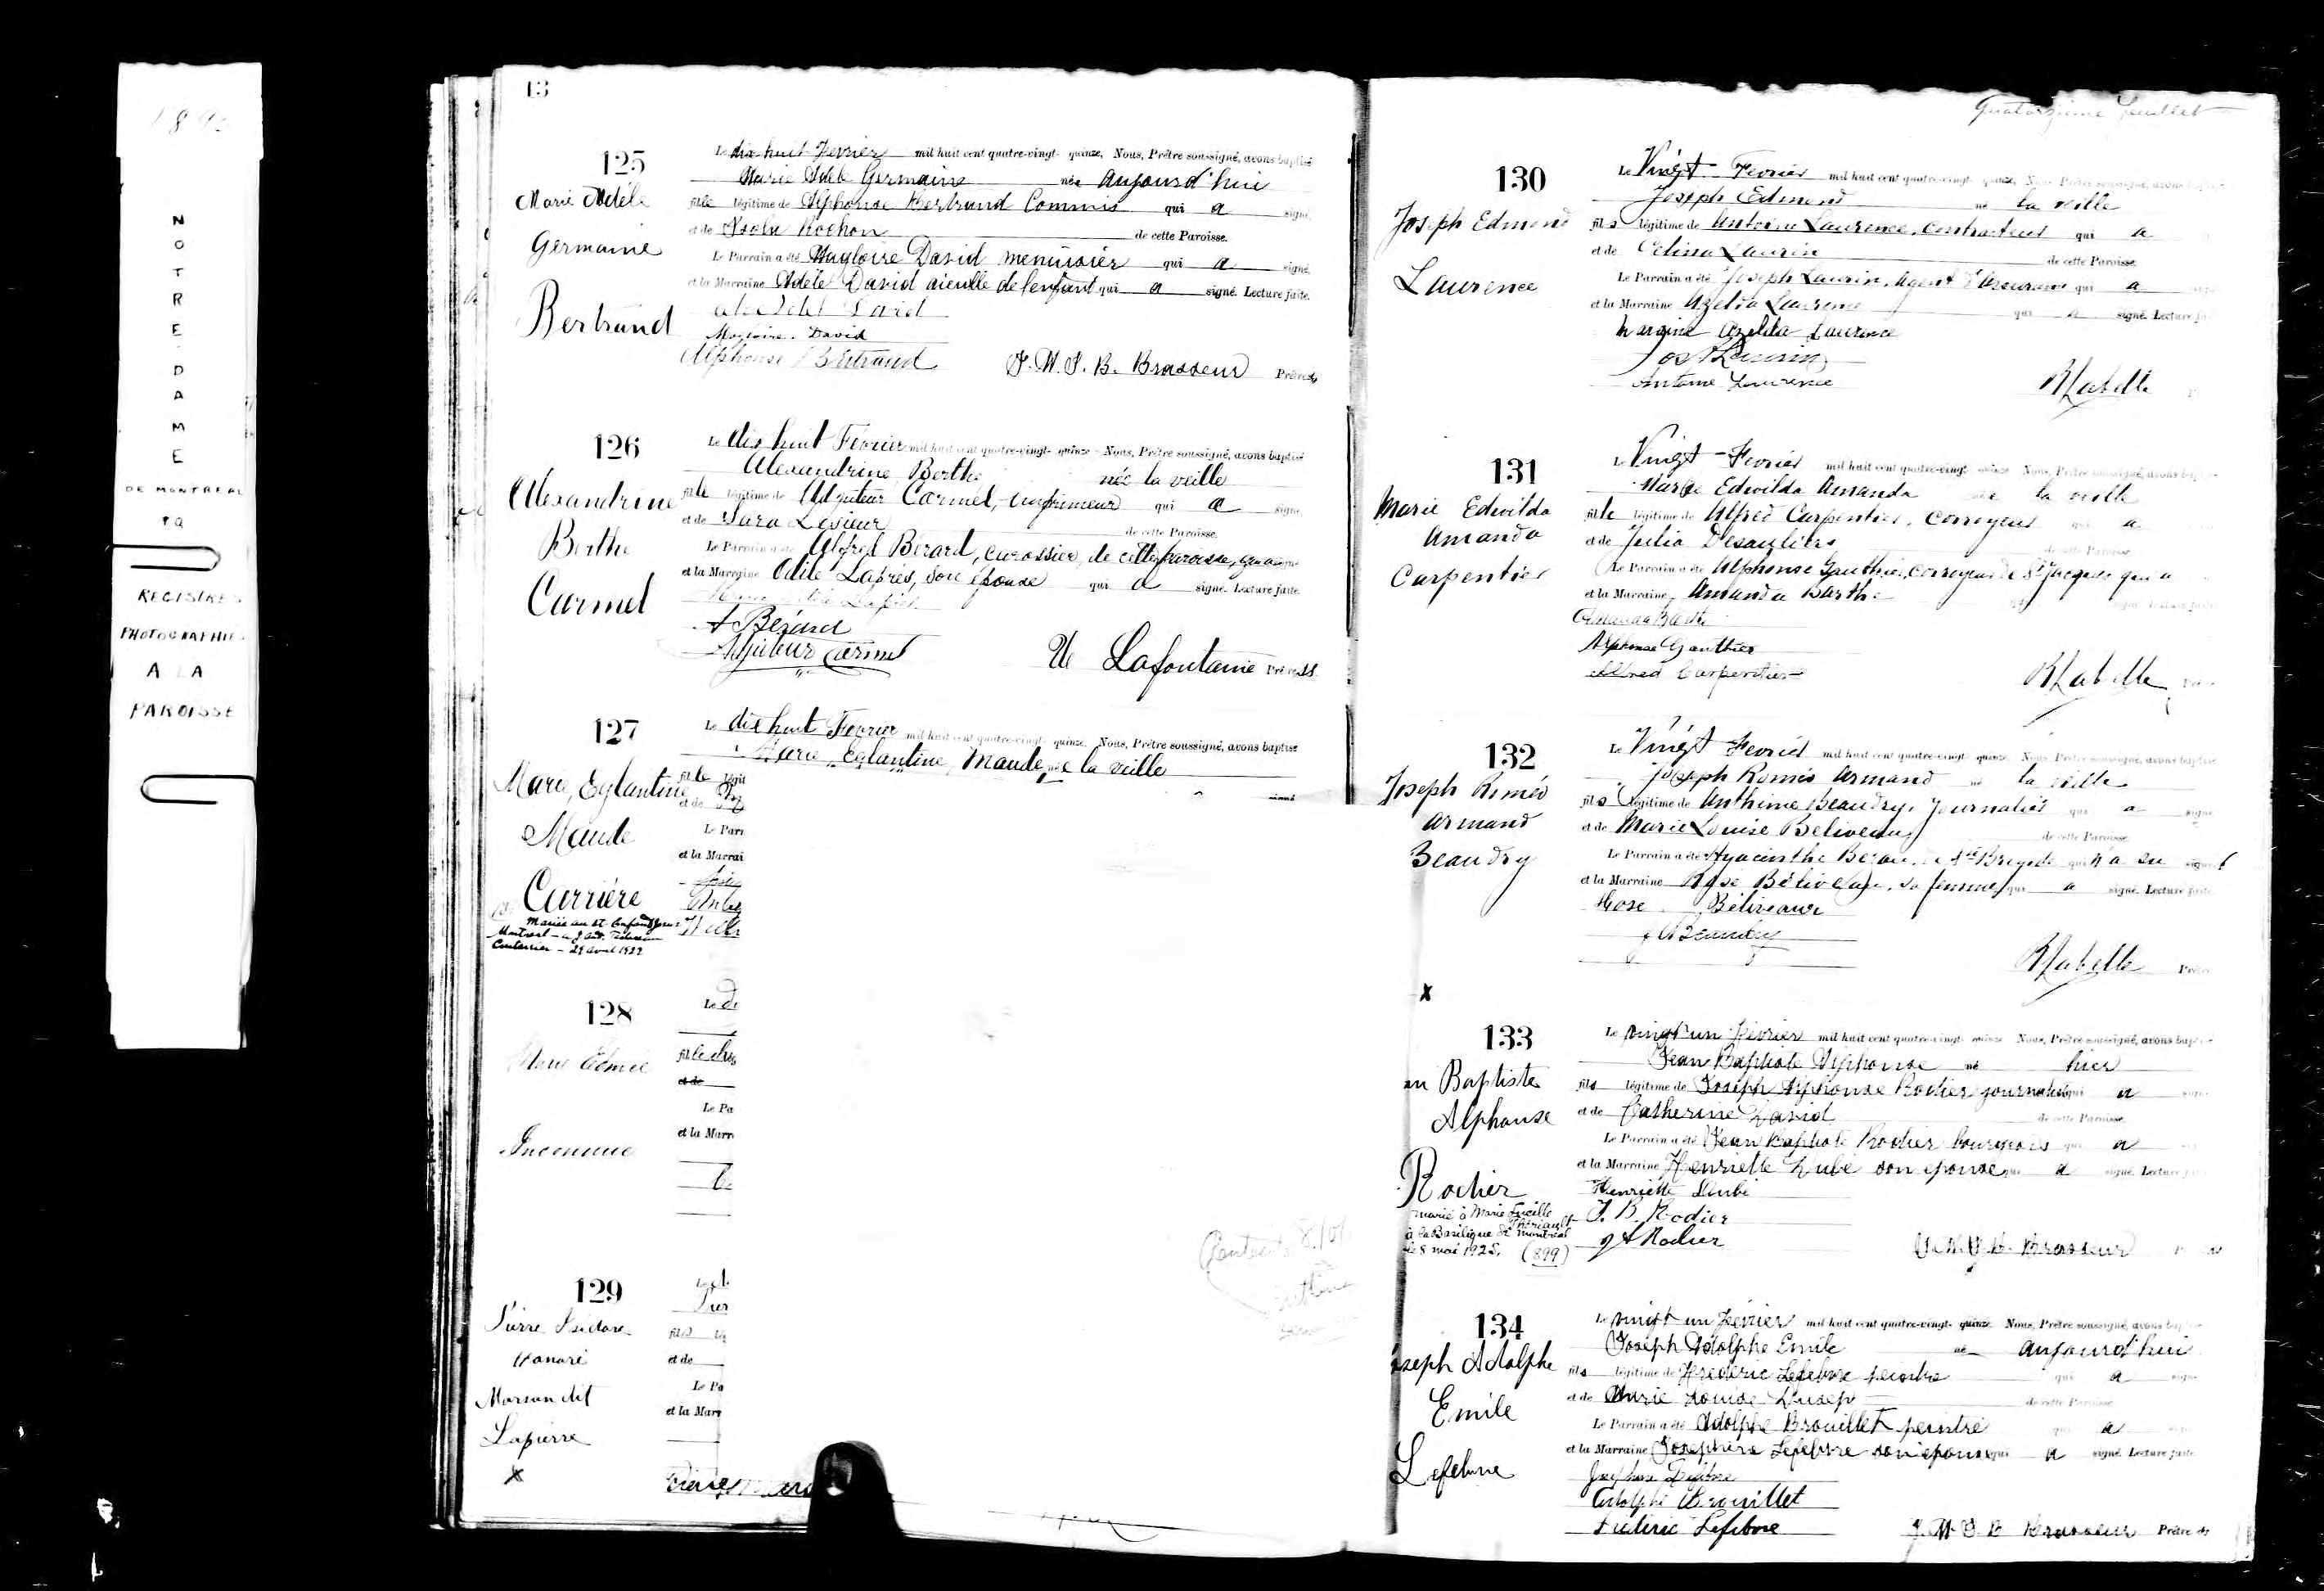 NOTRE DAME
DE MONTREAL
PQ
REGISTRES
PHOTOGRAPHIE
A LA
PAROISSE
13
125
Marie Adèle
Germaine
Bertrand
Le dix huit Fevrier mil huit cent quatre-vingt- quinze, Nous, Prêtre soussigné, avons baptisé
Marie Adele Germaine née aujourd'hui
fille légitime de Alphonse Bertrand Commis qui a signé,
et de Rochon de cette Paroisse.
Le Parrain a été Magloire David menuisier qui a signé,
et la Marraine Adèle David aieulle de lenfant qui a signé. Lecture faite.
David
Magloire. David
Alphonse Bertrand
Brasseur Prêtre
126
Alexandrine
Berthe
Carmel
Le dix huit Fevrier mil huit cent quatre-vingt- quinze Nous, Prêtre soussigné, avons baptisé
Alexandrine Berthe née la veille
fille légitime de Carmel, imprimeur qui a signé,
et de Sara Lesieur de cette Paroisse.
Le Parrain a été Alfred Berard, carossier, de cette paroisse,
et la Marraine Odile Laprès, son épouse qui a signé. Lecture faite.
A Bérard
Carmel
Lafontaine Prêtre
127
Marie, Eglantine
Maude
Currière
Mariée au St. Enfant Jesus
Montreal
29 avril 1922
Le dix huit Fevrier mil huit cent quatre-vingt- quinze. Nous, Prêtre soussigné, avons baptisé
Marie, Eglantine, Maude, née la veille
fille légit
et de
Le Parr
et la Marrai
128
Marie Edmée
Inconnue
Le d
fille
et de
Le Pa
et la Marr
129
Pierre Isidore
Honoré
Marsan dit
Lapierre
x
fils lég
et de
Le Pa
et la Marr
Quatorzième feuillet
130
Joseph Edmond
Laurence
Le Vingt Fevrier mil huit cent quatre-vingt quinze, Nous Prêtre soussigné, avons
Joseph Edmond né la veille
fils légitime de Antoine Laurence, contracteur qui a
et de Celina Laurin de cette Paroisse.
Le Parrain a été Joseph Laurin, Agent d'Assurance qui a
et la Marraine Azelda Laurence qui a signé. Lecture
Azelda Laurence
Jos Laurin
Antoine Laurence
R Labelle
131
Marie Edwilda
Amanda
Carpentier
Le Vingt Fevrier mil huit cent quatre-vingt quinze Nous, Prêtre soussigné, avons
Marie Edwilda Amanda née la veille
fille légitime de Alfred Carpentier, Corroyeur qui a
et de Julia Desauliers de cette Paroisse
Le Parrain a été Alphonse Gauthier, corroyeur de St Jacques qui a
et la Marraine Amanda Barthe
Amanda Barthe
Alphonse Gauthier
Alfred Carpentier
R Labelle
132
Joseph Roméo
Armand
Beaudry
Le Vingt Fevrier mil huit cent quatre-vingt quinze Nous, Prêtre soussigné, avons baptisé
Joseph Roméo Armand né la veille
fils légitime de Anthime Beaudry, Journalier qui a signé
et de Marie Louise Beliveau de cette Paroisse.
Le Parrain a été Hyacinthe de Ste Brigide qui n'a su signer
et la Marraine Rose Béliveau, sa femme qui a signé. Lecture faite
Rose Béliveau
Beaudry
R Labelle Prêtre
x
133
an Baptiste
Alphonse
Rodier
marié à Marie Lucille
Thériault
à la Basilique de Montréal
le 8 mai 1925. (899)
Le vingt un Février mil huit cent quatre-vingt- quinze Nous, Prêtre soussigné, avons
Jean Baptiste Alphonse né hier
fils légitime de Joseph Alphonse Rodier journalist qui a
et de Catherine David de cette Paroisse.
Le Parrain a été Jean Baptiste Rodier bourgeois qui a
et la Marraine Henriette Dubé son epouse qui a signé. Lecture
Henriette Dubé
J. B. Rodier
J A Rodier
Brasseur
134
oseph Adolphe
Emile
Lefebvre
Le vingt un Fevrier mil huit cent quatre-vingt- quinze Nous, Prêtre soussigné, avons
Joseph Adolphe Emile né aujourd'hui
fils légitime de Frederic Lefebvre peintre qui a signé
et de Marie Louise de cette Paroisse
Le Parrain a été Adolphe Brouillet peintre qui a
et la Marraine Josephine Lefebvre son epouse qui a signé. Lecture faite.
Josephine Lefebvre
Adolphe Brouillet
Frederic Lefebvre
Brasseur Prêtre